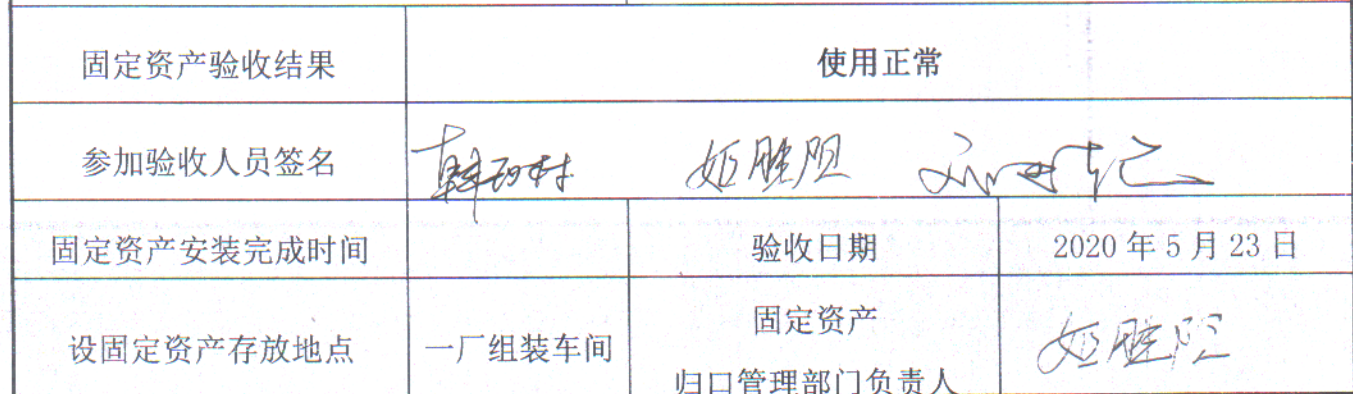 固定资产验收结果 使用正常
参加验收人员签名 姬胜阳
固定资产安装完成时间 验收日期 2020年5月23日
设固定资产存放地点 一厂组装车间 固定资产
归口管理部门负责人 姬胜阳